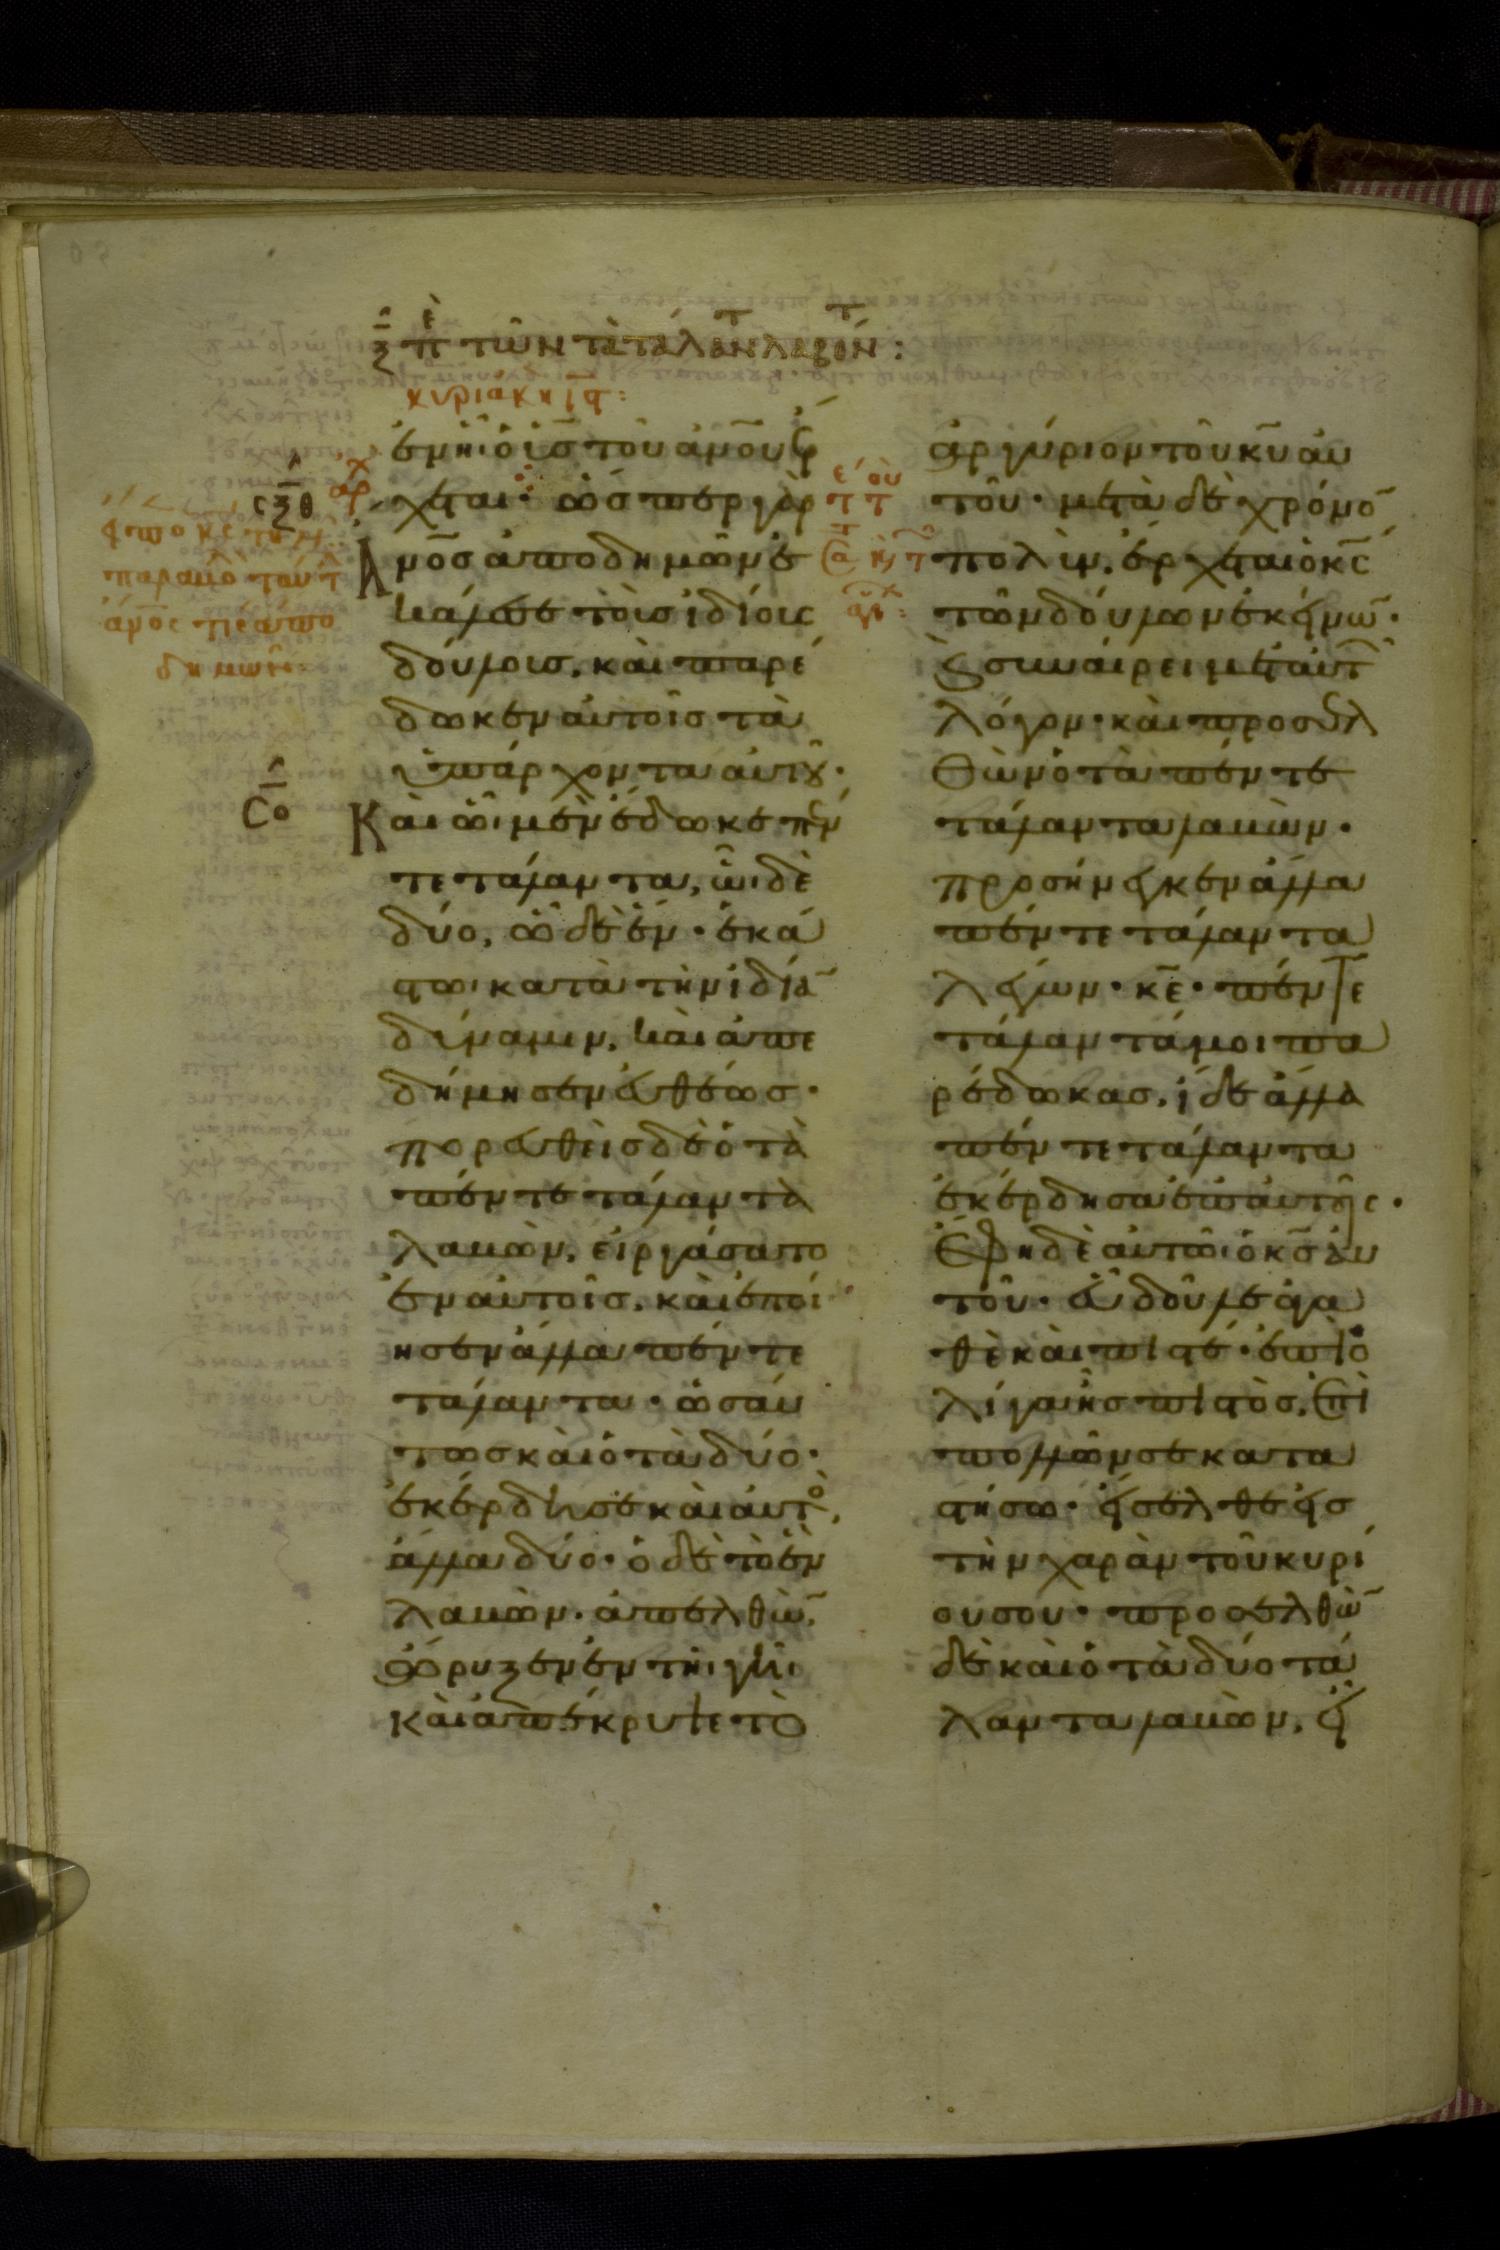 ξ̅ πὲ τῶν τὰ τάλαν̅τ λαβόν̅τ:
κυριακη ι̅ϛ̅:
ἐν ᾗ· ὁ υ̅ς̅ τοῦ ἀν̅ου ἔρ
χεται· ὥσπερ γὰρ
α̅ν̅ο̅σ ἀποδημῶν ἐ
κάλεσε τοὺσ ἰδίους
δούλουσ, καὶ παρέ
δωκεν αὐτοῖσ τὰ
ὑπάρχοντα αὐτοῦ·
Καὶ ᾧ μὲν ἔδωκε πέν
τε τάλαντα, ᾧ δὲ
δύο, ᾧ δὲ ἕν· ἑκά
στω κατὰ τὴν ἰδία̅
δύναμιν, καὶ ἀπε
δήμησεν εὐθέωσ·
πορευθεὶσ δὲ ὁ τὰ
πέντε τάλαντα
λαβὼν, εἰργάσατο
ἐν αὐτοῖσ, καὶ ἐποί
ησεν ἄλλα πέντε
τάλαντα· ὡσαύ
τωσ καὶ ὁ τὰ δύο·
ἐκέρδησε καὶ αὐτὸ,
ἄλλα δύο· ὁ δὲ τὸ ἓν
λαβὼν· ἀπελθὼ̅,
ὤρυξεν ἐν τῆ γῆ·
καὶ ἀπέκρυψε τὸ
ἀργύριον τοῦ κ̅υ̅ αὐ
τοῦ· μετὰ δὲ χρόνο̅
πολὺν, ἔρχεται ὁ κ̅ς̅
τῶν δούλων ἐκείνω̅·
Καὶ συναίρει μετ' αὐτῶ
λόγον· καὶ προσελ
θὼν ὁ τὰ πέντε
τάλαντα λαβὼν·
προσήνεγκεν ἄλλα
πέντε τάλαντα
λέγων· κ̅ε̅· πέντε
τάλαντά μοι πα
ρέδωκασ, ἴδε ἄλλα
πέντε τάλαντα
ἐκέρδησα ἐπ' αὐτοῖς·
Ἔφη δὲ αὐτῶ ὁ κ̅σ̅ αὐ
τοῦ· εὖ δοῦλε ἀγα
θὲ καὶ πιστέ· ἐπὶ ὀ
λίγα ἦσ πιστὸσ, ἐπὶ
πολλῶν σε κατα
στήσω· εἴσελθε εἰσ
τὴν χαρὰν τοῦ κυρί
ου σου· προσελθὼ̅
δὲ καὶ ὁ τὰ δύο τά
λαντα λαβὼν, εἶ
αρχ
σ̅ξ̅θ
ειπο κς την
παραβολ ταυτ
ἀν̅ος τις ἀπο
δημῶν:
σ̅ο